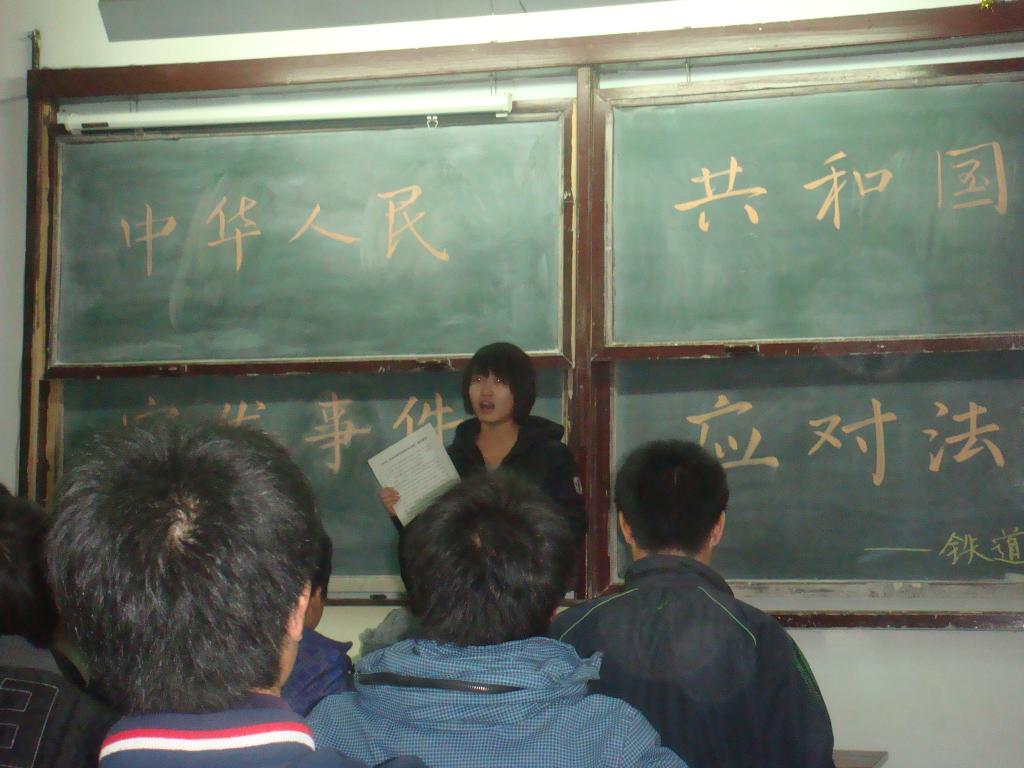 中华人民共和国
突发事件应对法
——铁道